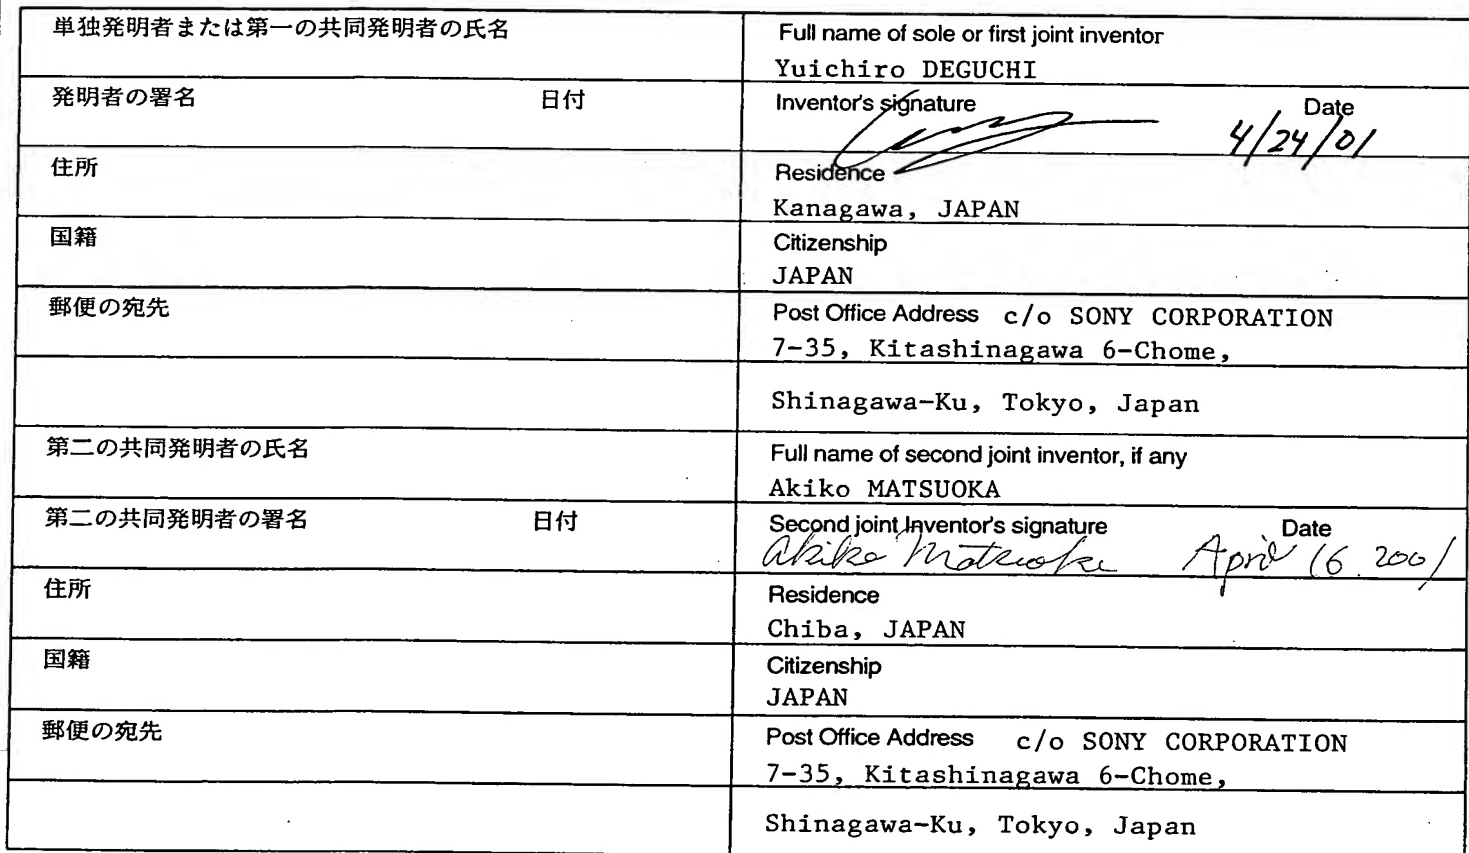 単独発明者または第一の共同発明者の氏名
Full name of sole or first joint inventor
Yuichiro DEGUCHI
発明者の署名 日付
Inventor's signature Date
4/24/01
住所
Residence
Kanagawa, JAPAN
国籍
Citizenship
JAPAN
郵便の宛先
Post Office Address c/o SONY CORPORATION
7-35, Kitashinagawa 6-Chome,
Shinagawa-Ku, Tokyo, Japan
第二の共同発明者の氏名
Full name of second joint inventor, if any
Akiko MATSUOKA
第二の共同発明者の署名 日付
Second joint Inventor's signature Date
Akiko Matsuoka April 16. 2001
住所
Residence
Chiba, JAPAN
国籍
Citizenship
JAPAN
郵便の宛先
Post Office Address c/o SONY CORPORATION
7-35, Kitashinagawa 6-Chome,
Shinagawa-Ku, Tokyo, Japan